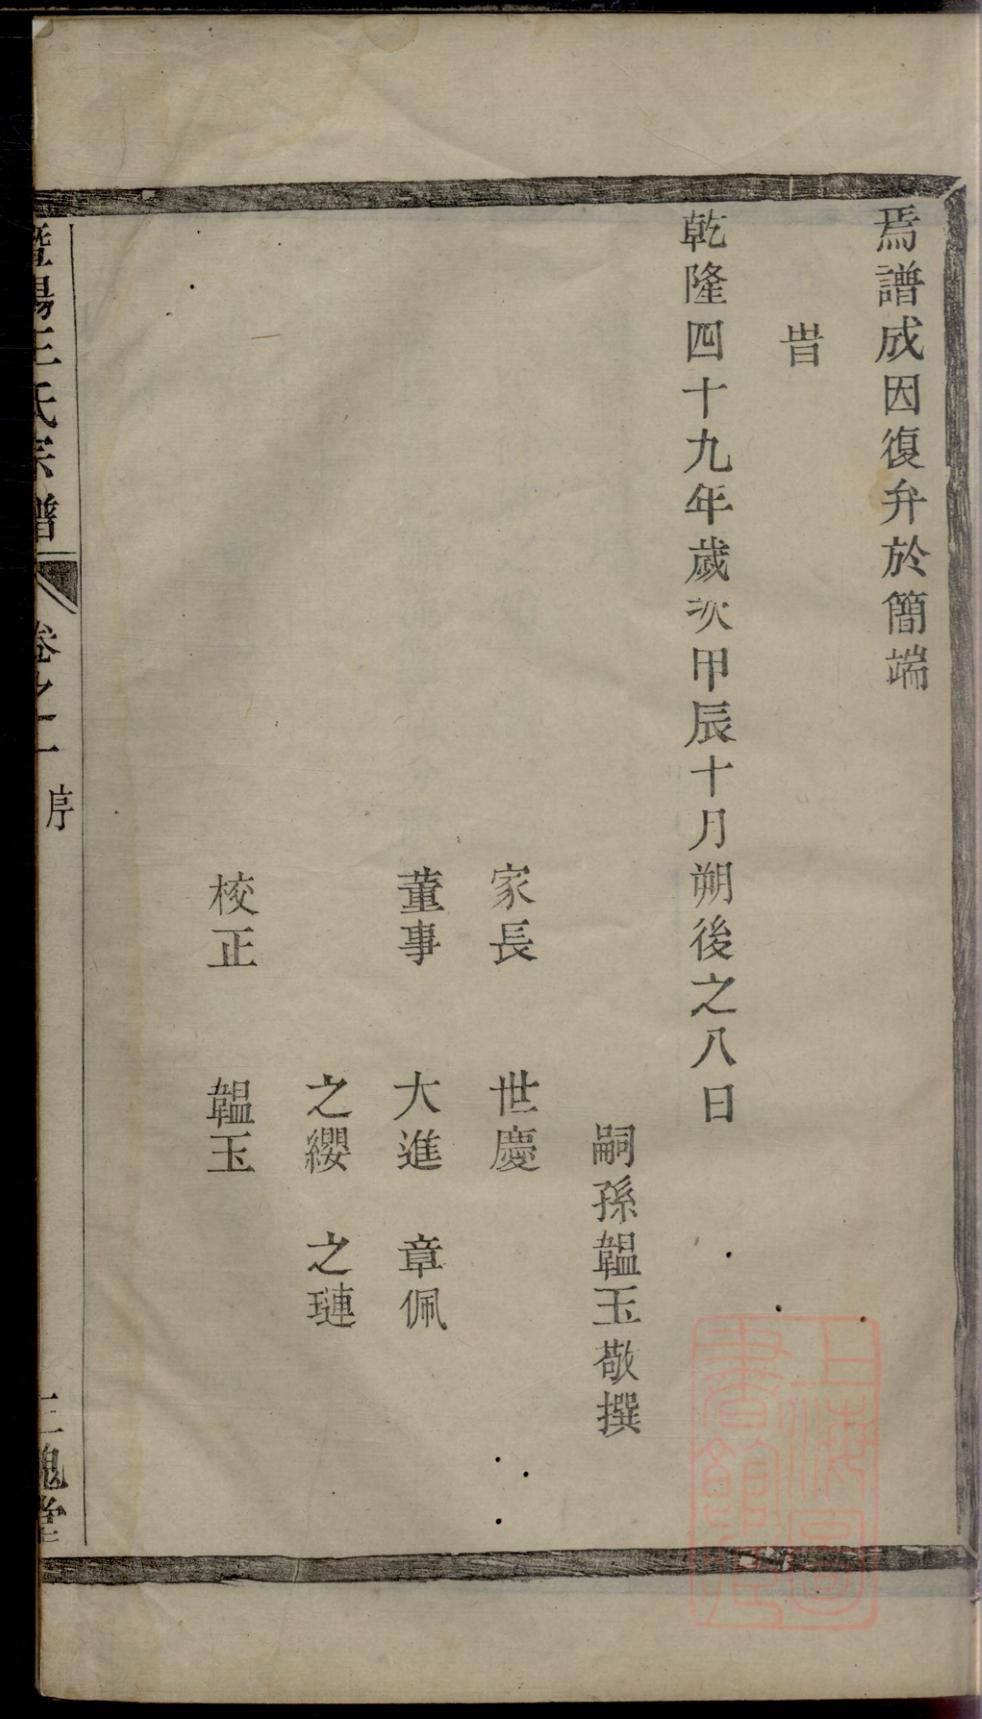 焉譜成因復弁於簡端
旹
乾隆四十九年歲次甲辰十月朔後之八日
嗣孫韞玉敬撰
家長 世慶
董事 大進 章佩
之纓 之璉
校正 韞玉
暨陽王氏宗譜 卷之一 序 三槐堂
上海圖書館藏